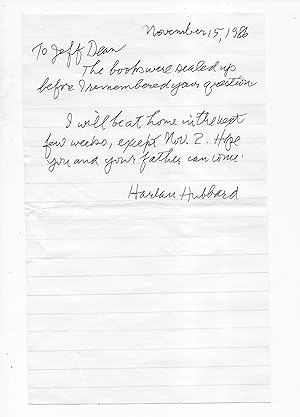 November 15, 1986
To Jeff Dean
The books were sealed up
before I remembered your question
I will be at home in the next
few weeks, except Nov. 2. Hope
you and your father can come.
Harlan Hubbard